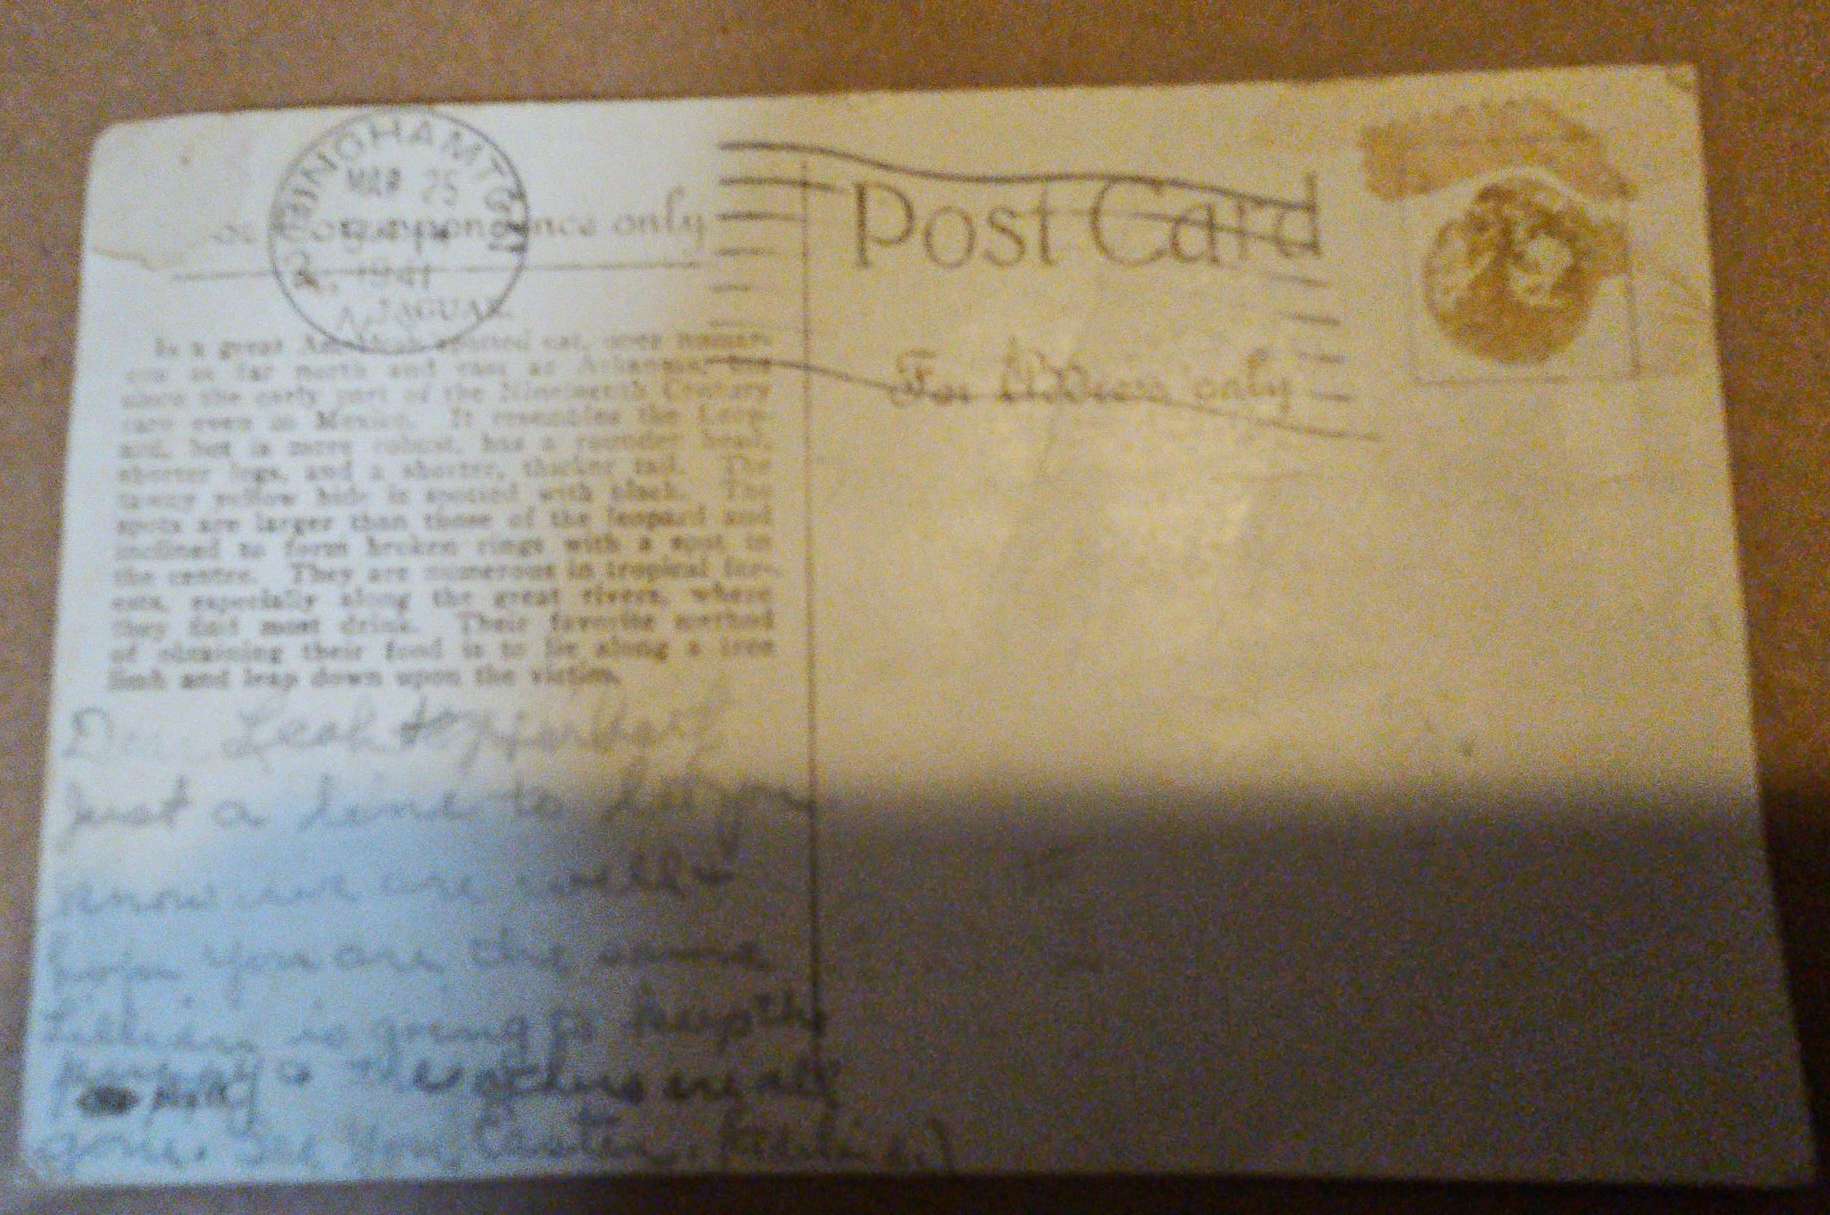 BINGHAMTON
MAR 25
1941
N.
Correspondence only
Post Card
For Address only
JAGUAR
Is a great American spotted cat, once numer-
ous as far north and east as Arkansas, but
since the early part of the Nineteenth Century
rare even in Mexico. It resembles the Leop-
ard, but is more robust, has a rounder head,
shorter legs, and a shorter, thicker tail. The
tawny yellow hide is spotted with black. The
spots are larger than those of the leopard and
inclined to form broken rings with a spot in
the centre. They are numerous in tropical for-
ests, especially along the great rivers, where
they find most drink. Their favorite method
of obtaining their food is to lie along a tree
limb and leap down upon the victim.
Leah &
Just a line to let you
know we are well &
hope you are the same
Lillian is going to keep the
the others are all
gone. See You Easter.